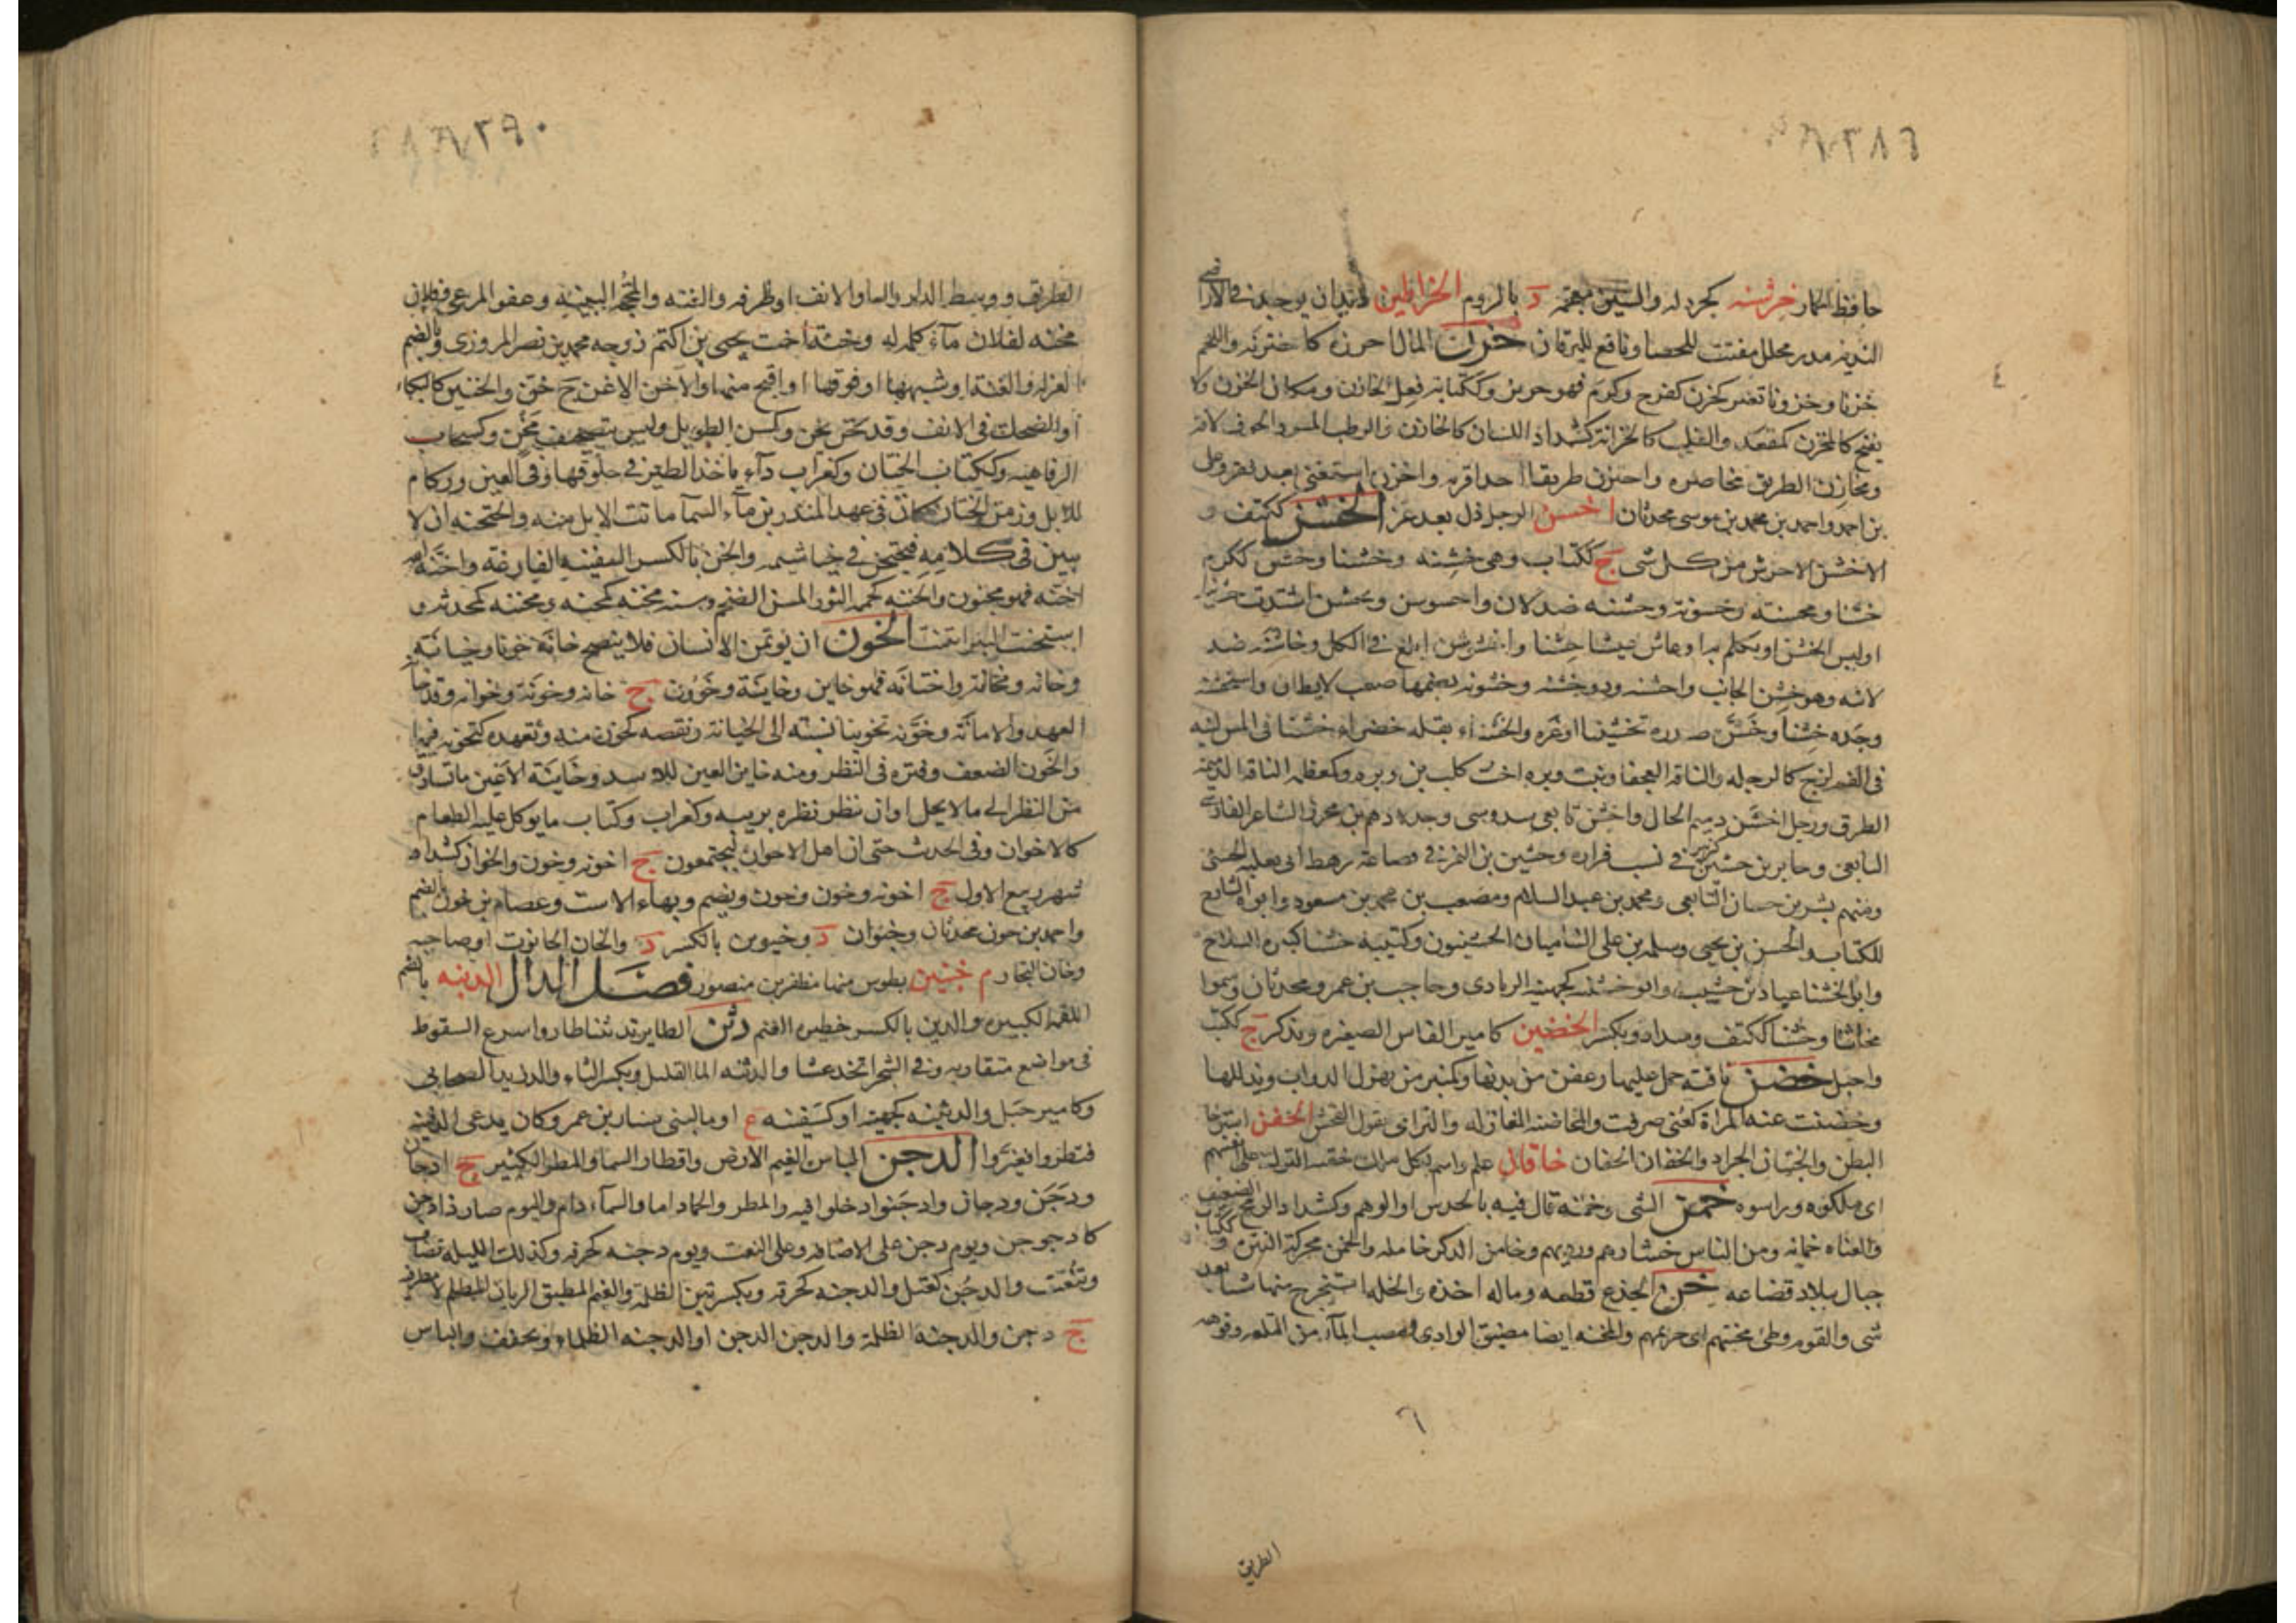 حافظ الحمار خرشنه كجردله والسين معجمه د بالروم الخراطين ديدان يوجد في الاراضي
النديه مدر محلل مفتت للحصا ونافع لليرقان خزن المال احرزه كاختزنه واللحم
خزنا وخزونا تغير كخزن كفرح وكرم فهو خزين وككتابه فعل الخازن ومكان الخزن ولا
يفتح كالمخزن كمقعد والقلب كالخزانة كشداد اللسان كالخازن والرطب المسود الجوف لافة
ومخازن الطريق مخاصره واختزن طريقا اخذ اقربه واخزن استغنى بعد فقر وعلى
بن احمد واحمد بن محمد بن موسى محدثان اخسن الرجل ذل بعد عز الخشن ككتف و
الاخشن الاحرش من كل شى ج ككتاب وهى خشنه وخشنا وخشن ككرم
خشنا ومخشنه وخشونة وخشنه ضد لان واخشوشن وتخشن اشتدت خشونته
او لبس الخشن او تكلم به او عاش عيشا خشنا واخشوشن ابلغ في الكل وخاشنه ضد
لاينه وهو خشن الجانب واخشنه وذو خشنه وخشونه بضمها صعب لايطاق واستخشنه
وجده خشنا وخشن صدره تخشينا اوغره والخشناء بقله خضراء خشنا في المس لينه
في الفم لزج كالرجله والناقه العجفا وبنت وبره اخت كلب بن وبره وكمعظمه الناقه الذميمه
الطرق ورجل اخشن دميم الحال واخشن تابعى سدوسى وجد لادهم بن محرز الشاعر الفارس
التابعى وجابر بن خشين كزبير في نسب فزاره وخشين بن النمر في قضاعة رهط ابى ثعلبه الخشنى
ومنهم بشر بن حسان التابعى ومحمد بن عبد السلام ومصعب بن محمد بن مسعود وابوه الشارح
للكتاب والحسن بن يحيى وسلمه بن على الشاميان الخشنيون وكتيبه خشنا كثيره السلاح
وابو الخشنا عباد بن حسيب وابو خشينه كجهينه الزيادى وحاجب بن عمرو محدثان وسموا
مخاشنا وخشنا ككتف وسداد وبكسر الخضين كامير الفاس الصغيره ويذكر ج ككتب
واجبل خضن ناقته حمل عليها وعض من بدنها وكمنبر من يهزل الدواب ويذللها
وخضنت عنه المراة كعنى صرفت والمخاضنه المغازله والترامى بقول الفحش الخفن استرخا
البطن والخيفان الجراد والخفان الحفان خاقان علم واسم لكل ملك خقنه الترك على انفسهم
اى ملكوه وراسوه خمن الشى وخمنه قال فيه بالحدس او الوهم وكشداد الرمح الضعيف
والقناه خمانه ومن الناس خشارهم ورديهم وخامن الذكر خامله والخمن محركة النتن وكتاب
جبال ببلاد قضاعه خن الجذع قطعه وماله اخذه والخله استخرج منها شيا بعد
شى والقوم وطى مخنتهم اى حريمهم والمخنه ايضا مضيق الوادى ومصب الماء من التلعه وفوهه
الطريق
الطريق ووسط الدار والفنا والانف او طرفه والغنه والمحجه البينه وعفو المرعى وفلان
مخنه لفلان مآء كله له وخنه اخت يحيى بن اكثم زوجه محمد بن نصر المروزى وبالضم
العزله والغنه او شبهها او فوقها او اقبح منها والاخن الاغن ج خن والخنين كالبكاء
او الضحك في الانف وقد خن يخن وكسن الطويل وليس بتصحيف مخن وكسحاب
الرفاهيه وككتاب الختان وكغراب دآء ياخذ الطير في حلوقها وفي العين وزكام
للابل وزمن الخنان كان في عهد المنذر بن ماء السما ماتت الابل منه والخنخنه ان لا
يبين في كلامه فيخنخن في خياشيمه والخن بالكسر السفينه الفارغة واخنه الله
اجنه فهو مجنون والخنه كجمه الثور المسن الضخم وسنه مخنه كمجنه ومخننه كمحدثه و
استخنت البئر انتنت الخون ان يوتمن الانسان فلا ينصح خانه خونا وخيانة
وخانه ومخانه واختانه فهو خاين وخاينة وخوون ج خانه وخونة وخوانه وقد خانه
العهد والامانة وخونه تخوينا نسبته الى الخيانة ونقصه كخون منه وتعهده كتخونه فيهما
والخون الضعف وفتره في النظر ومنه خاين العين للاسد وخاينة الاعين ما تسارق
من النظر الى ما لا يحل او ان ينظر نظره بريبه وكغراب وكتاب ما يوكل عليه الطعام
كالاخوان وفي الحديث حتى ان اهل الاخوان ليجتمعون ج اخونه وخون والخوان كشداد
شهر ربيع الاول ج اخونه وخون وخون ويضم وبهاء الاست وعصام بن خون بالضم
واحمد بن خون محدثان وخنوان د وخيوين بالكسر د والخان الحانوت او صاحبه
وخان التجار م خنين بطوس منها مظفر بن منصور فصل الدال الدبنه بالضم
اللقمه الكبيره والدبن بالكسر خظيره الغنم دثن الطاير تدثنا طار واسرع السقوط
في مواضع متقاربه وفي الشجر اتخذ عشا والدثنه الما القليل وبكسر الثاء والد زيد الصحابى
وكامير جبل والدثينه كجهينه او كسفينه ع او ما لبنى سيار بن عمرو وكان يدعى الدفينه
فتطيروا فغيروا الدجن الباس الغيم الارض واقطار السما والمطر الكثير ج ادجان
ودجن ودجان وادجنوا دخلوا فيه والمطر والحمى داما والسمآء دام واليوم صار ذا دجن
كادجوجن ويوم دجن على الاضافه وعلى النعت ويوم دجنه كحزقه وكذلك الليله تضاف
وتنعت والدجن كعتل والدجنه كحزقه وبكسرتين الظلمة والغيم المطبق الريان المظلم لا مطر فيه
ج دجن والدجنه الظلمة والدجن الدجن او الدجنه الظلماء ويخفف والباس